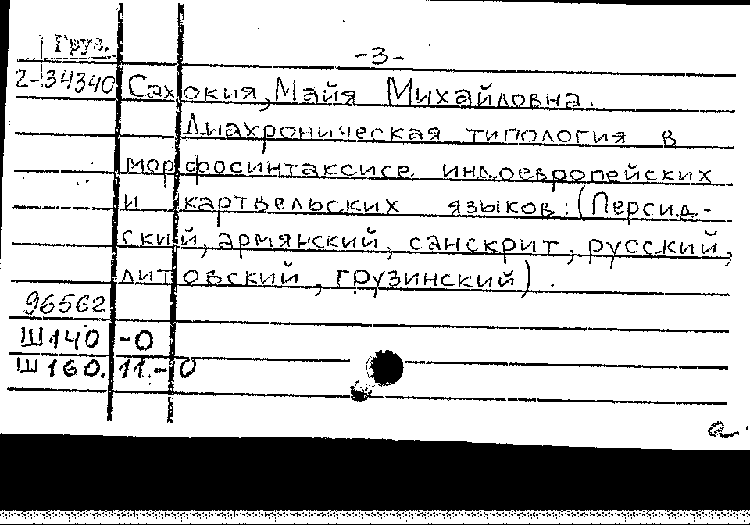 Груз. -3-
2-34340 Сахокия, Майя Михайловна.
Диахроническая типология в
морфосинтаксисе индоевропейских
и картвельских языков: (Персид-
ский, армянский, санскрит, русский,
литовский, грузинский).
96562
Ш140 -0
Ш160. 11.-0
а.